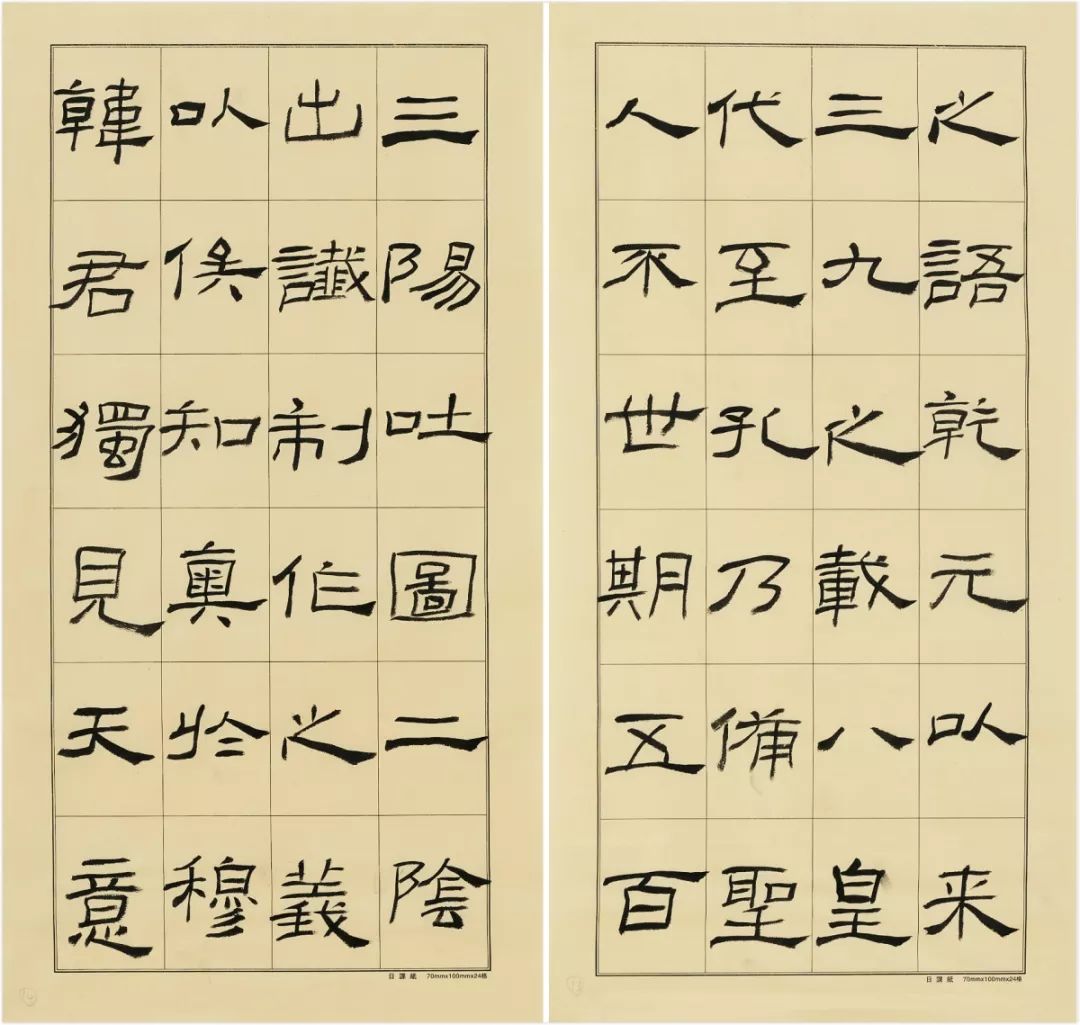 之語乾元以来
三九之載八皇
代至孔乃備聖
人不世期五百
日課紙 70mmx100mmx24格
13
三陽吐圖二陰
出讖制作之義
以俟知奥於穆
韓君獨見天意
日課紙 70mmx100mmx24格
14